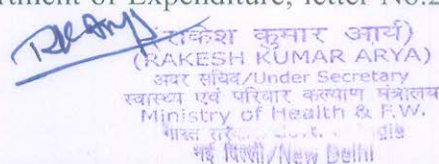 rtment of Expenditure, letter No.2
(राकेश कुमार आर्य)
(RAKESH KUMAR ARYA)
अवर सचिव/Under Secretary
स्वास्थ्य एवं परिवार कल्याण मंत्रालय
Ministry of Health & F.W.
भारत
नई दिल्ली/New Delhi